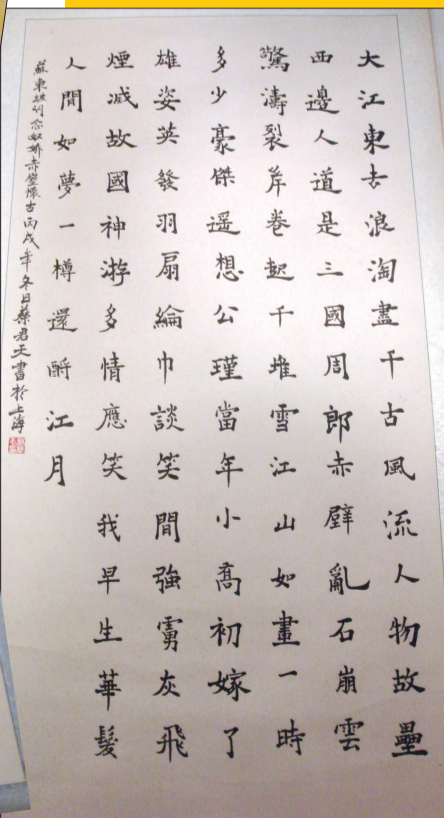 大江東去浪淘盡千古風流人物故壘
西邊人道是三國周郎赤壁亂石崩雲
驚濤裂岸卷起千堆雪江山如畫一時
多少豪傑遥想公瑾當年小喬初嫁了
雄姿英發羽扇綸巾談笑間強虜灰飛
煙滅故國神游多情應笑我早生華髮
人間如夢一樽還酹江月
蘇東坡詞念奴嬌赤壁懷古丙戌年冬日君天書於上海